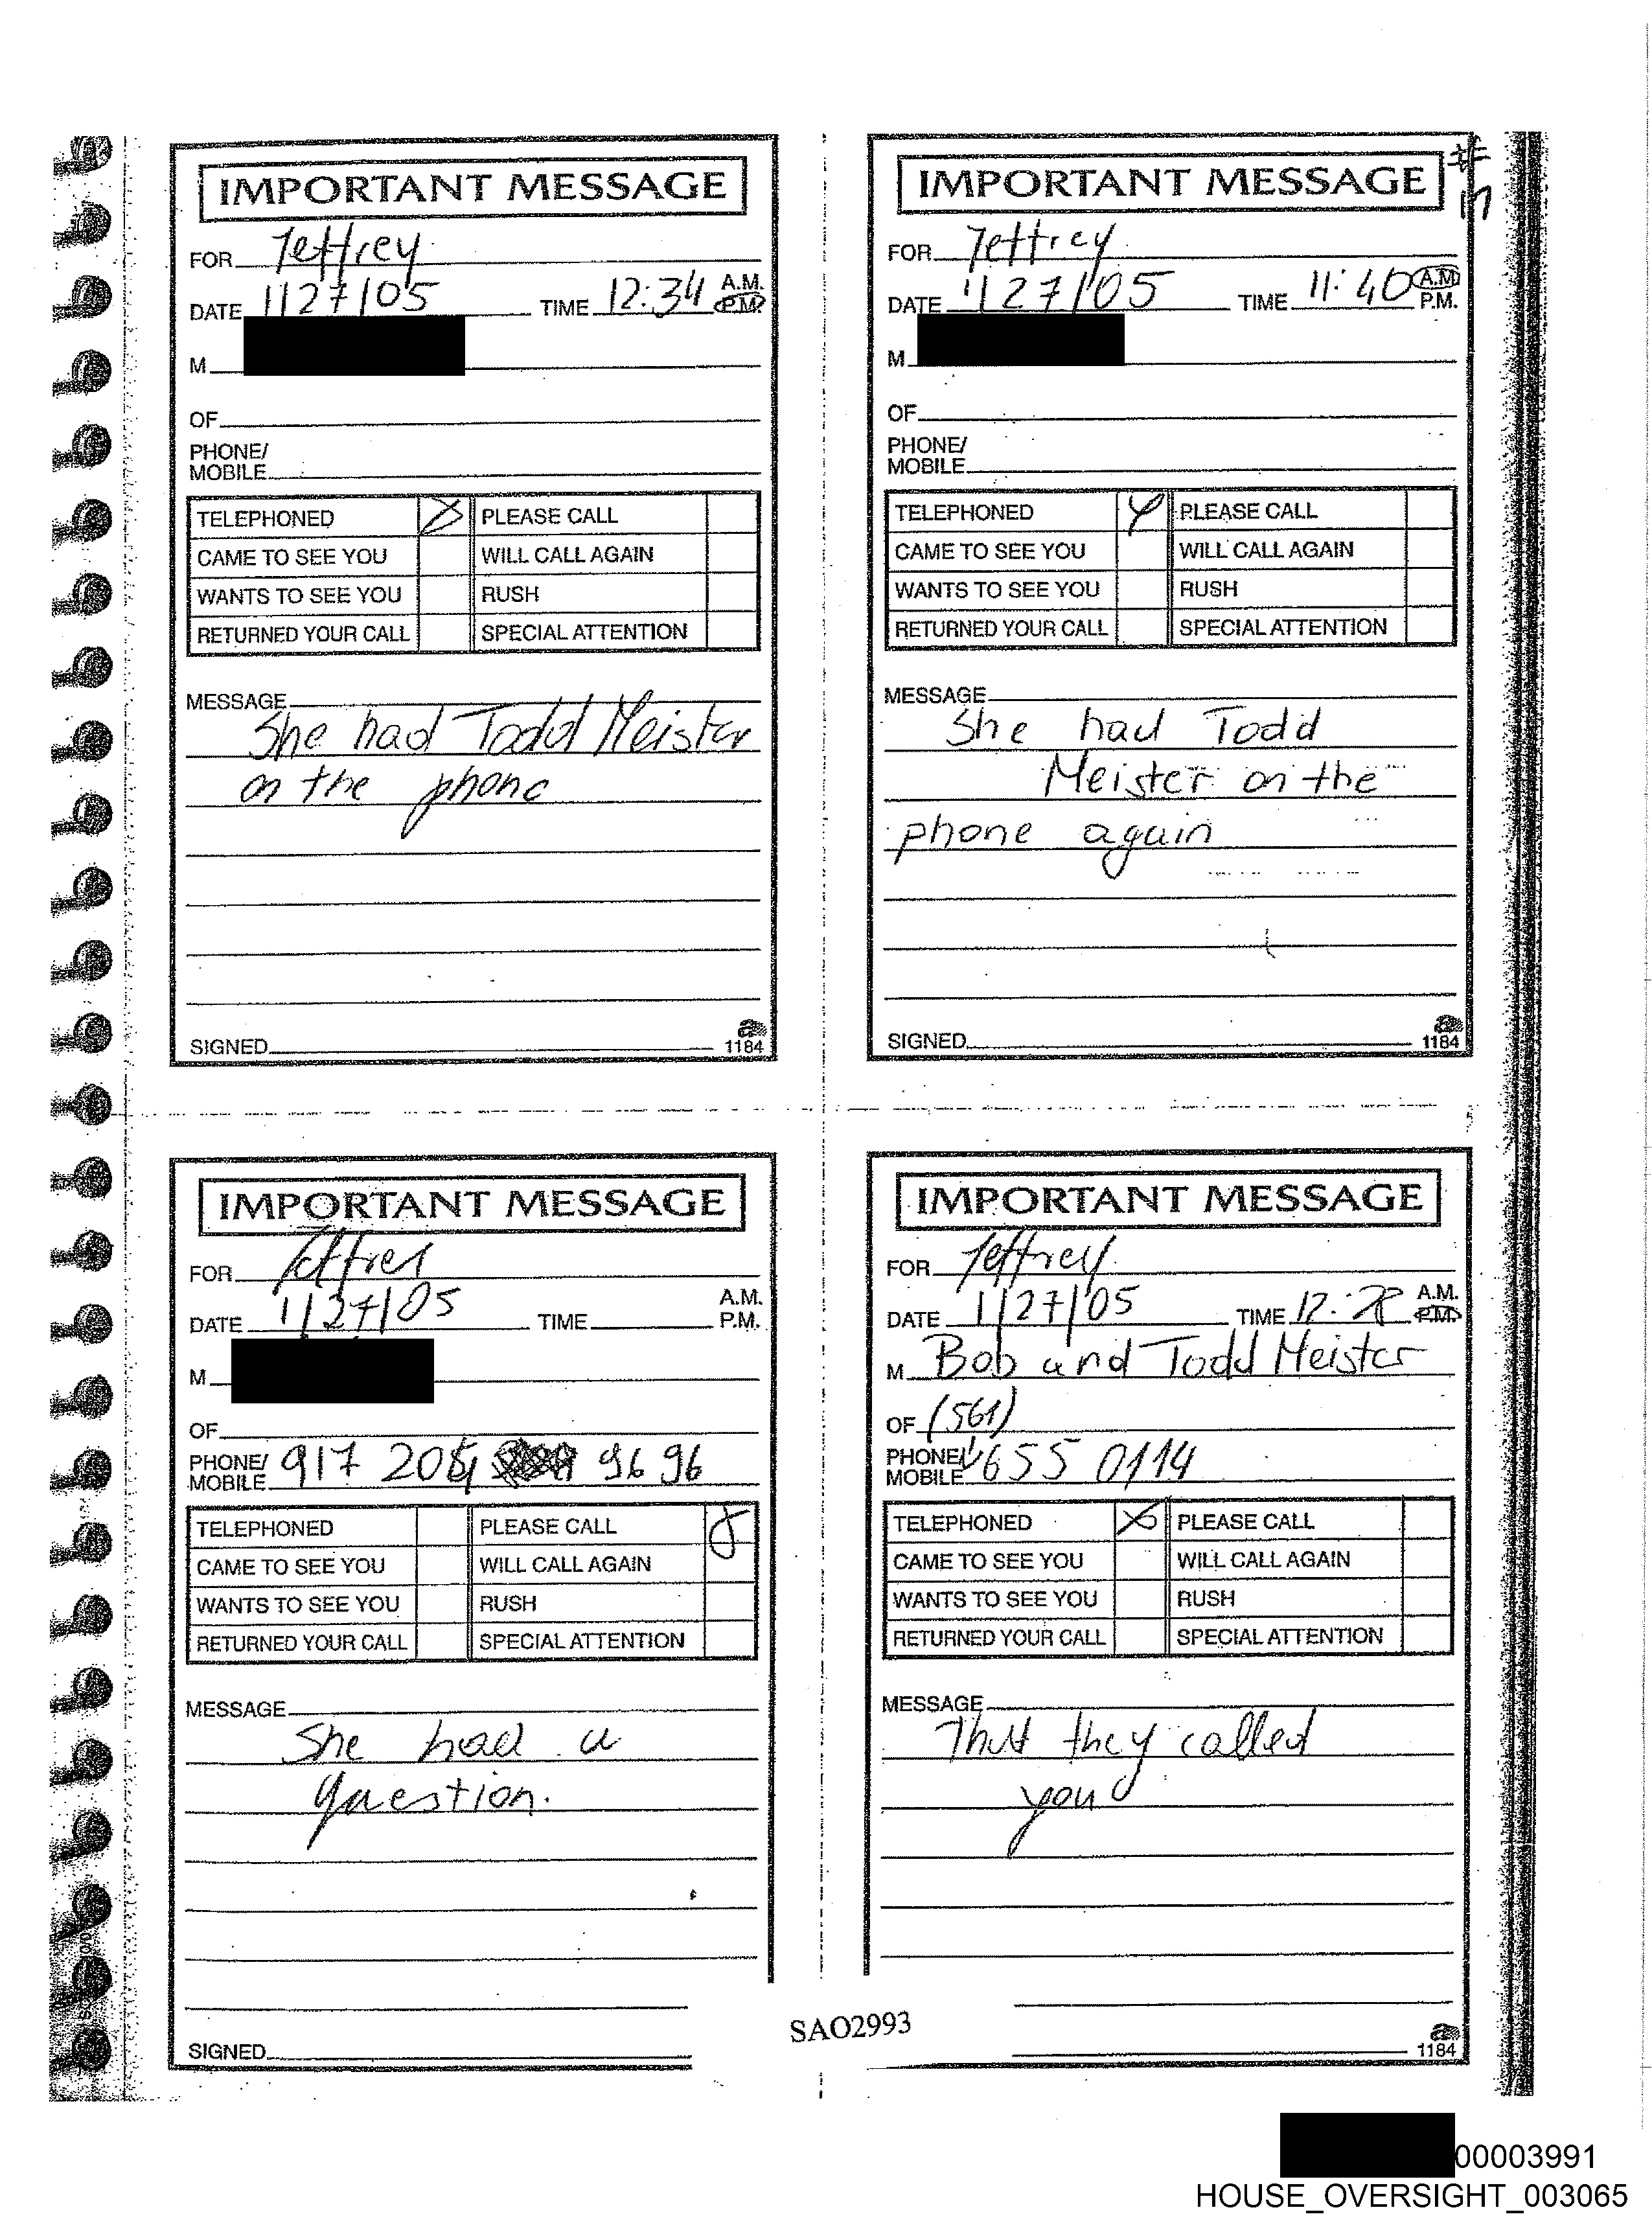 IMPORTANT MESSAGE
FOR Jeffrey
DATE 1/27/05 TIME 12:34 A.M. P.M.
M
OF
PHONE/
MOBILE
TELEPHONED PLEASE CALL
CAME TO SEE YOU WILL CALL AGAIN
WANTS TO SEE YOU RUSH
RETURNED YOUR CALL SPECIAL ATTENTION
MESSAGE
She had Todd Meister
on the phone
SIGNED
1184
IMPORTANT MESSAGE
FOR Jeffrey
DATE 1/27/05 TIME 11:40 A.M. P.M.
M
OF
PHONE/
MOBILE
TELEPHONED PLEASE CALL
CAME TO SEE YOU WILL CALL AGAIN
WANTS TO SEE YOU RUSH
RETURNED YOUR CALL SPECIAL ATTENTION
MESSAGE
She had Todd
Meister on the
phone again
SIGNED
1184
IMPORTANT MESSAGE
FOR Jeffrey
DATE 1/27/05 TIME A.M. P.M.
M
OF
PHONE/
MOBILE 917 9696
TELEPHONED PLEASE CALL
CAME TO SEE YOU WILL CALL AGAIN
WANTS TO SEE YOU RUSH
RETURNED YOUR CALL SPECIAL ATTENTION
MESSAGE
She had a
question.
SIGNED
IMPORTANT MESSAGE
FOR Jeffrey
DATE 1/27/05 TIME A.M. P.M.
M Bob and Todd Meister
OF (561)
PHONE/
MOBILE 655 0114
TELEPHONED PLEASE CALL
CAME TO SEE YOU WILL CALL AGAIN
WANTS TO SEE YOU RUSH
RETURNED YOUR CALL SPECIAL ATTENTION
MESSAGE
That they called
you
1184
SAO2993
00003991
HOUSE_OVERSIGHT_003065